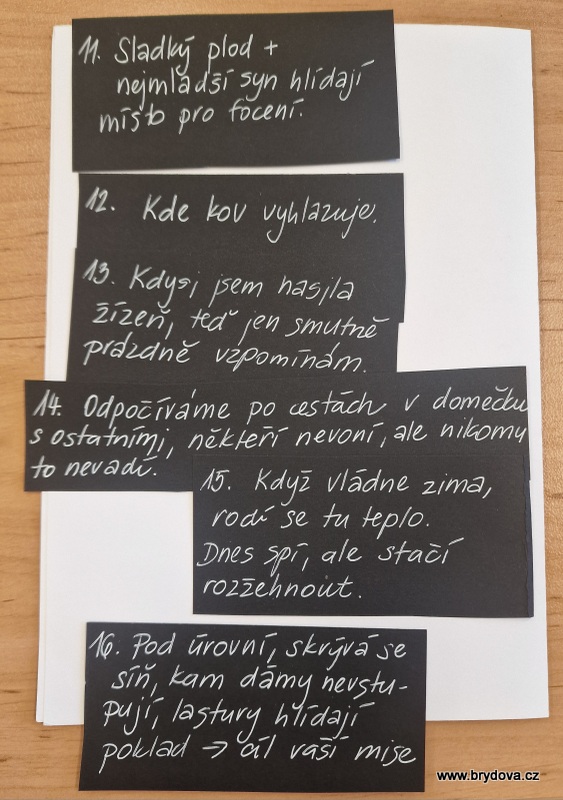 11. Sladký plod +
nejmladší syn hlídají
místo pro focení.
12. Kde kov vyhlazuje.
13. Kdysi jsem hasila
žízeň, teď jen smutně
prázdně vzpomínám.
14. Odpočíváme po cestách v domečku
s ostatními, někteří nevoní, ale nikomu
to nevadí.
15. Když vládne zima,
rodí se tu teplo.
Dnes spí, ale stačí
rozžehnout.
16. Pod úrovní, skrývá se
síň, kam dámy nevstu-
pují, lastury hlídají
poklad → cíl vaší mise
www.brydova.cz